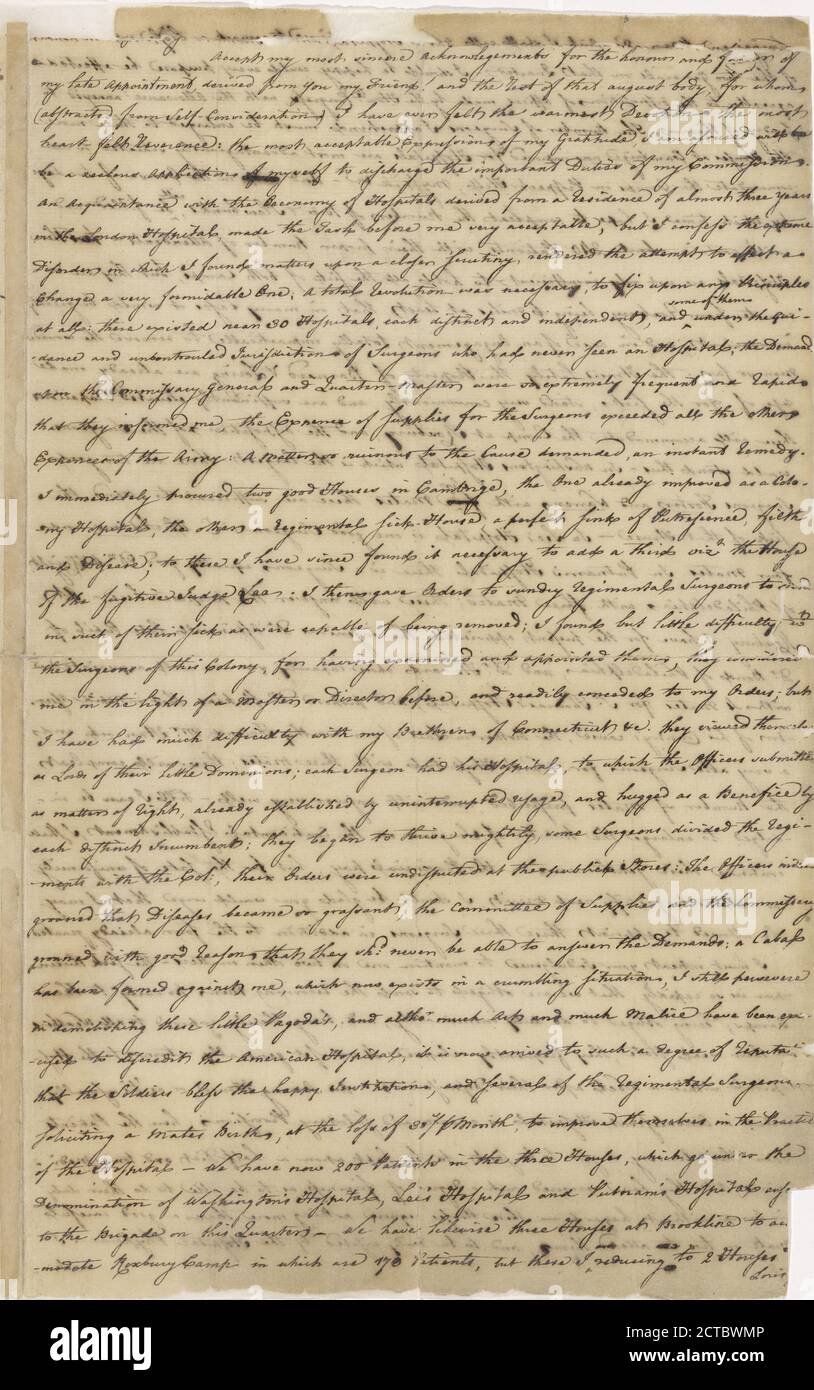 Accept my most sincere acknowlegements for the honour and of
my late appointment derived from you my Friend! and the rest of that august body, for whom
(abstracted from Self Consideration) I have ever felt the warmest the most
heart-felt Reverence: the most acceptable Expressions of my Gratitude
be a zealous application of myself to discharge the important Duties of my Commission.
An Acquaintance with the Oeconomy of Hospitals derived from a Residence of almost three years
in the London Hospitals, made the Task before me very acceptable, but I confess the extreme
Disorder in which I found matters upon a closer scrutiny, rendered the attempt to effect a
Change a very formidable One; a total Revolution was necessary, to fix upon any Principles
some of them
at all: there existed near 30 Hospitals, each distinct and independent, and under the Gui-
-dance and uncontrouled Jurisdiction of Surgeons who had never seen an Hospital; the Demand
the Commissary General and Quarter-Master were so extremely frequent and rapid
that they informed me, the Expence of Supplies for the Surgeons exceeded all the other
Expences of the Army: A matter so ruinous to the Cause demanded an instant Remedy.
I immediately procured two good Houses in Cambrige, the One already improved as a Colo-
-ny Hospital, the other a Regimental Sick-House, a perfect sink of Putrefience, filth
and Disease; to these I have since found it necessary to add a third vizt. the House
of the fugitive Judge Lee: I then gave Orders to sundry Regimental Surgeons to send
in such of their sick as were capable of being removed; I found but little difficulty wth
the Surgeons of this Colony, for having examined and appointed them, they considered
me in the light of a Master or Director before, and readily conceded to my Orders; but
I have had much difficulty with my Brethren of Connecticut &c. they viewed
as Lords of their little Dominions; each Surgeon had his Hospital, to which the Officers submitted
as matter of right, already established by uninterrupted usage, and hugged as a Benefice by
each distinct Incumbent; they began to thrive mightily, some Surgeons divided the Regi-
-ments with the Col:, their Orders were undisputed at the publick Stores: The Officers
groaned that Diseases became so grassant, the Committee of Supplies and the Commissary
groaned, with good reason, that they shd. never be able to answer the Demands; a Cabal
has been formed against me, which now exists in a crumbling situation, I still persevere
in demolishing these little Pagoda's, and altho' much Art and much Malice have been exer-
-cised to discredit the American Hospital, it is now arived to such a degree of Reputan.
that the Soldiers bless the happy Institution, and several of the Regimental Surgeons
soliciting a Mates Birth, at the loss of 30/ Month, to improve themselves in the Practice
of the Hospital – We have now 200 Patients in the three Houses, which go under the
Denomination of Washington's Hospital, Lee's Hospital and Putnam's Hospital
to the Brigade on this Quarter – We have likewise three Houses at Brookline to acco-
-modate Roxbury Camp in which are 170 Patients, but these I am reducing to 2 Houses
alamy
Image ID: 2CTBWMP
www.alamy.com